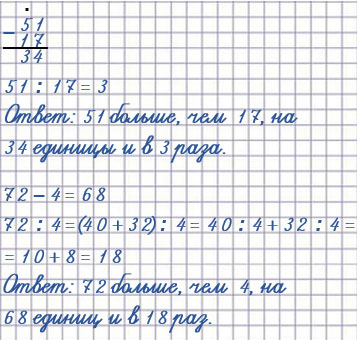 .
− 51
17
34
51 : 17 = 3
Ответ: 51 больше, чем 17, на
34 единицы и в 3 раза.
72 − 4 = 68
72 : 4 = (40 + 32) : 4 = 40 : 4 + 32 : 4 =
= 10 + 8 = 18
Ответ: 72 больше, чем 4, на
68 единиц и в 18 раз.